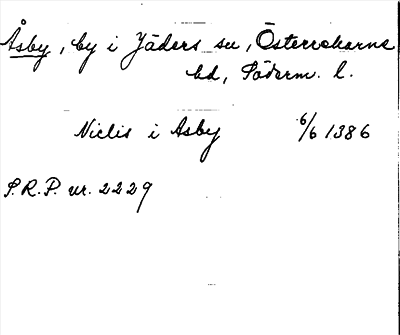 Åsby, by i Jäders sn, Österrekarne
hd, Söderm. l.
Niclis i Asby 6/6 1386
S.R.P. nr. 2229